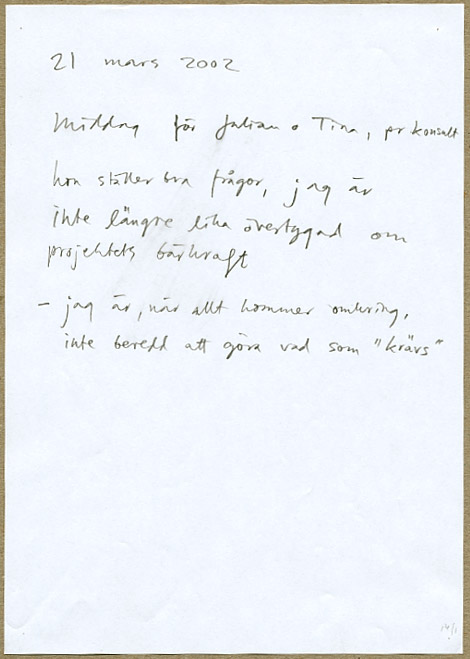 21 mars 2002
Middag för Julian o Tina, pr konsult
hon ställer bra frågor, jag är
inte längre lika övertygad om
projektets bärkraft
– jag är, när allt kommer omkring,
inte beredd att göra vad som "krävs"